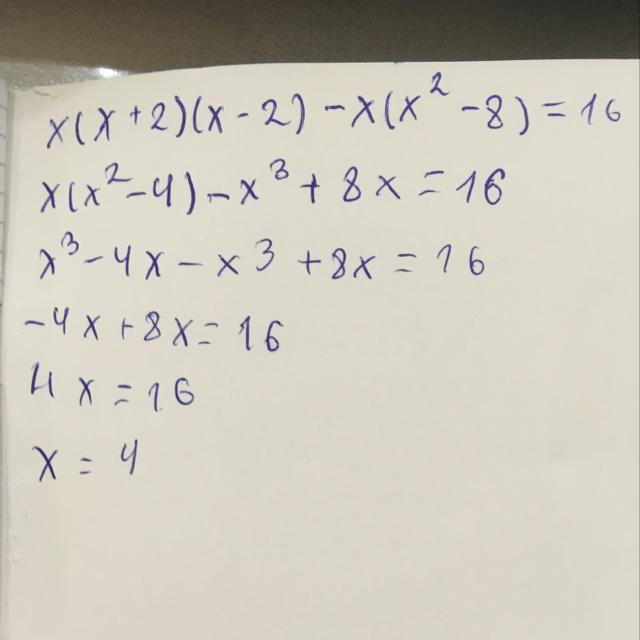 x(x+2)(x-2)-x(x²-8)=16
x(x²-4)-x³+8x=16
x³-4x-x3+8x=16
-4x+8x=16
4x=16
x=4